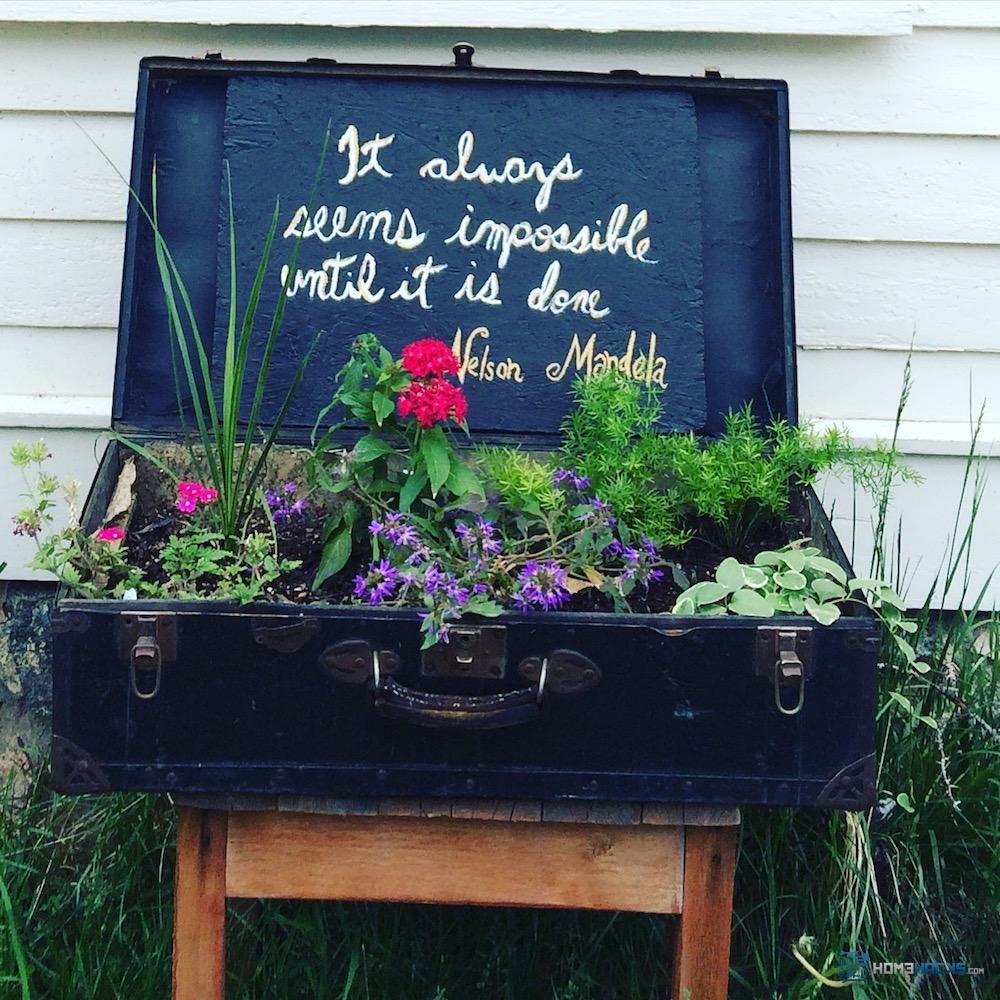 It always
seems impossible
until it is done
Nelson Mandela